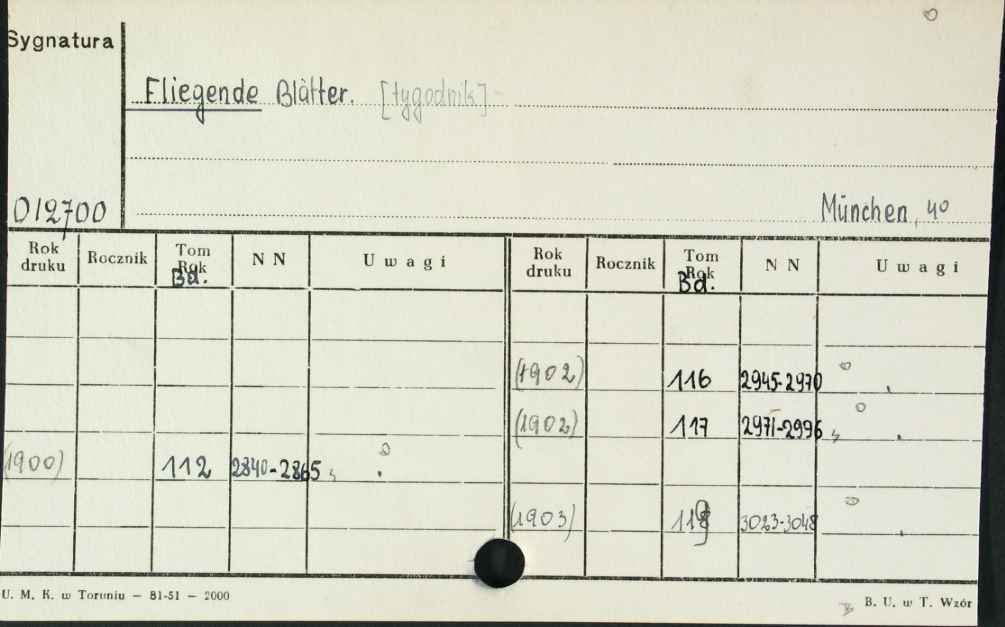 Sygnatura
Fliegende Blätter. [tygodnik]
012700
München, 40
Rok druku Rocznik Tom Rok Bd. N N Uwagi Rok druku Rocznik Tom Rok Bd. N N Uwagi
(1902) 116 2945-2970
(1902) 117 2971-2996
(1900) 112 2840-2865
(1903) 3023-3048
U. M. K. w Toruniu — 81-51 — 2000
B. U. w T. Wzór